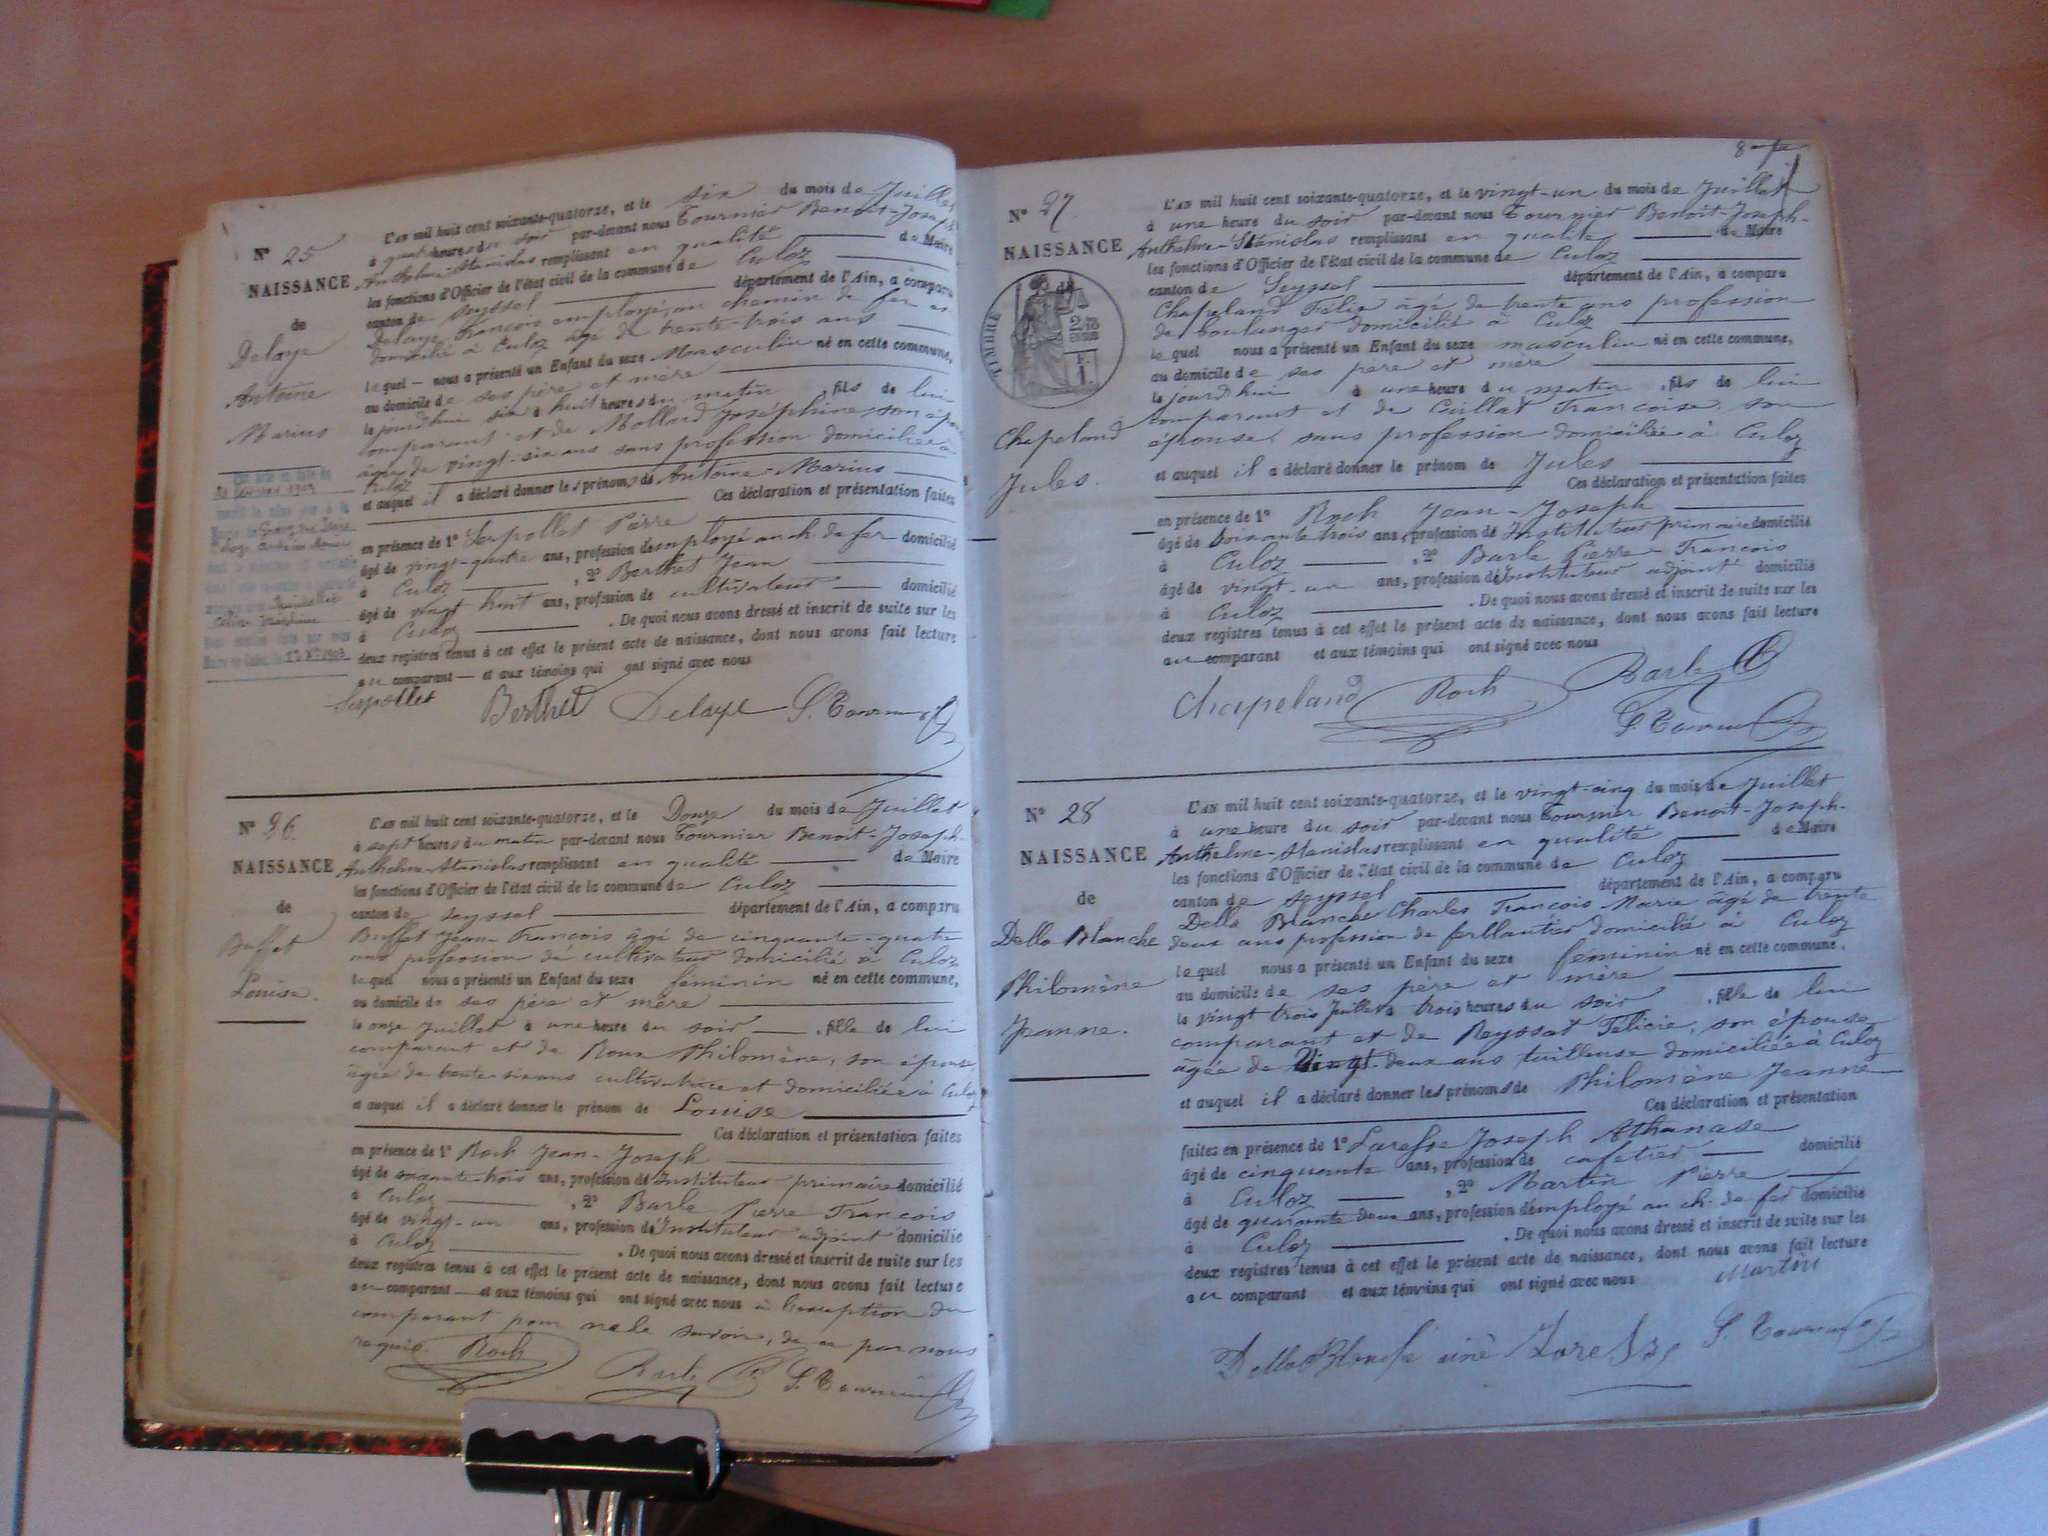 N° 25
NAISSANCE
de
Delaye
Antoine
Marius
L'an mil huit cent soixante-quatorze, et le six du mois de Juillet
à quatre heures du soir par-devant nous Tournier Benoit-Joseph
Anthelme-Stanislas remplissant en qualité de Maire
les fonctions d'Officier de l'état civil de la commune de Culoz
canton de Seyssel département de l'Ain, a comparu
Delaye François employé au chemin de fer
domicilié à Culoz âgé de trente-trois ans
lequel nous a présenté un Enfant du sexe Masculin né en cette commune,
au domicile de ses père et mère
le jourd'hui six à huit heures du matin, fils de lui
comparant et de Mollard Joséphine, son épouse
âgée de vingt-six ans sans profession domiciliée à
Culoz
et auquel il a déclaré donner les prénoms de Antoine-Marius
Ces déclaration et présentation faites
en présence de 1° Serpollet Pierre
âgé de vingt-quatre ans, profession d'employé au ch. de fer domicilié
à Culoz, 2° Berthet Jean
âgé de vingt huit ans, profession de cultivateur domicilié
à Culoz. De quoi nous avons dressé et inscrit de suite sur les
deux registres tenus à cet effet le présent acte de naissance, dont nous avons fait lecture
au comparant et aux témoins qui ont signé avec nous
Serpollet Berthet Delaye S. Tournier
N° 26.
NAISSANCE
de
Buffet
Louise.
L'an mil huit cent soixante-quatorze, et le Douze du mois de Juillet
à sept heures du matin par-devant nous Tournier Benoit-Joseph-
Anthelme-Stanislas remplissant en qualité de Maire
les fonctions d'Officier de l'état civil de la commune de Culoz
canton de Seyssel département de l'Ain, a comparu
Buffet Jean François âgé de cinquante-quatre
ans profession de cultivateur domicilié à Culoz
lequel nous a présenté un Enfant du sexe féminin né en cette commune,
au domicile de ses père et mère
le onze Juillet à une heure du soir, fille de lui
comparant et de Roux Philomène, son épouse,
âgée de trente-six ans cultivatrice et domiciliée à Culoz
et auquel il a déclaré donner le prénom de Louise
Ces déclaration et présentation faites
en présence de 1° Roch Jean-Joseph
âgé de soixante trois ans, profession d'Instituteur primaire domicilié
à Culoz, 2° Barle Pierre François
âgé de vingt-un ans, profession d'Instituteur adjoint domicilié
à Culoz. De quoi nous avons dressé et inscrit de suite sur les
deux registres tenus à cet effet le présent acte de naissance, dont nous avons fait lecture
au comparant et aux témoins qui ont signé avec nous à l'exception du
comparant pour ne le savoir, de ce par nous
requis. Roch Barle S. Tournier
N° 27
NAISSANCE
TIMBRE
Chapeland
Jules.
L'an mil huit cent soixante-quatorze, et le vingt-un du mois de Juillet
à une heure du soir par-devant nous Tournier Benoit-Joseph-
Anthelme-Stanislas remplissant en qualité de Maire
les fonctions d'Officier de l'état civil de la commune de Culoz
canton de Seyssel département de l'Ain, a comparu
Chapeland Félix âgé de trente ans profession
de boulanger domicilié à Culoz
lequel nous a présenté un Enfant du sexe masculin né en cette commune,
au domicile de ses père et mère
le jourd'hui à une heure du matin, fils de lui
comparant et de Cuillat Françoise, son
épouse, sans profession domiciliée à Culoz
et auquel il a déclaré donner le prénom de Jules
Ces déclaration et présentation faites
en présence de 1° Roch Jean-Joseph
âgé de soixante trois ans, profession d'Instituteur primaire domicilié
à Culoz, 2° Barle Pierre-François
âgé de vingt-un ans, profession d'Instituteur adjoint domicilié
à Culoz. De quoi nous avons dressé et inscrit de suite sur les
deux registres tenus à cet effet le présent acte de naissance, dont nous avons fait lecture
au comparant et aux témoins qui ont signé avec nous
Chapeland Roch Barle
S. Tournier
N° 28
NAISSANCE
de
Della Blanche
Philomène
Jeanne.
L'an mil huit cent soixante-quatorze, et le vingt-cinq du mois de Juillet
à une heure du soir par-devant nous Tournier Benoit-Joseph-
Anthelme-Stanislas remplissant en qualité de Maire
les fonctions d'Officier de l'état civil de la commune de Culoz
canton de Seyssel département de l'Ain, a comparu
Della Blanche Charles François Marie âgé de trente
deux ans profession de ferblantier domicilié à Culoz
lequel nous a présenté un Enfant du sexe féminin né en cette commune,
au domicile de ses père et mère
le vingt trois Juillet à trois heures du soir, fille de lui
comparant et de Reyssat Félicie, son épouse
âgée de Vingt-deux ans tailleuse domiciliée à Culoz
et auquel il a déclaré donner les prénoms de Philomène Jeanne
Ces déclaration et présentation
faites en présence de 1° Laresse Joseph Athanase
âgé de cinquante ans, profession de cafetier domicilié
à Culoz, 2° Martin Pierre
âgé de quarante deux ans, profession d'employé au ch. de fer domicilié
à Culoz. De quoi nous avons dressé et inscrit de suite sur les
deux registres tenus à cet effet le présent acte de naissance, dont nous avons fait lecture
au comparant et aux témoins qui ont signé avec nous Martin
Della Blanche ainé Laresse S. Tournier